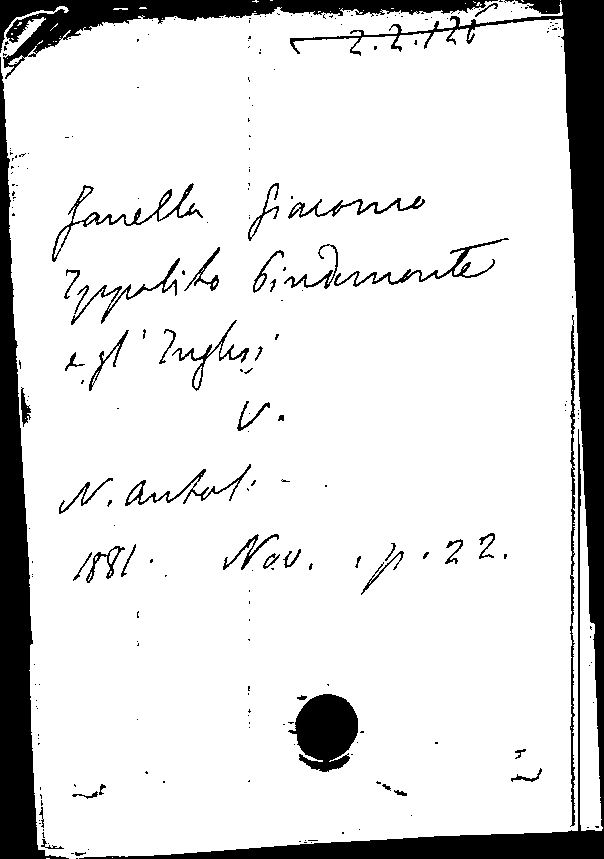 2.2.126
Zanella Giacomo
Ippolito Pindemonte
e gl' Inglesi
V.
N. Antol.
1881. Nov. . p. 22.